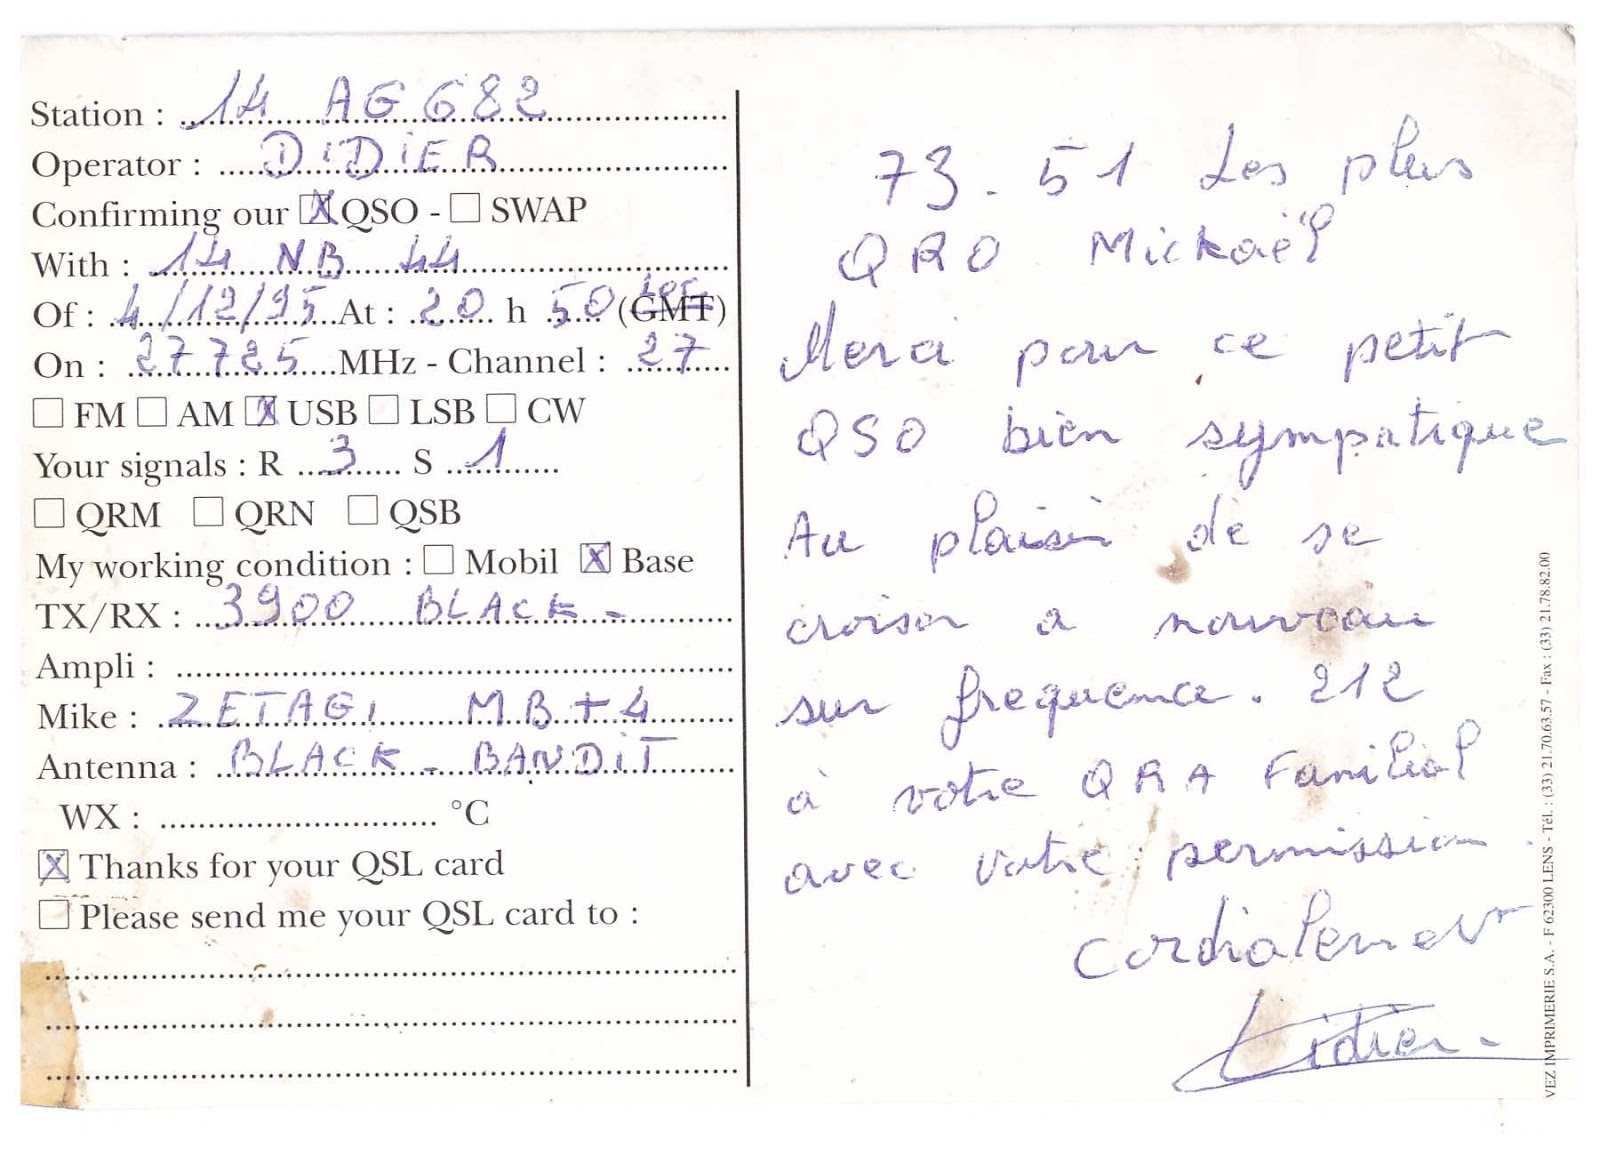 Station : 14 AG 682
Operator : DIDIER
Confirming our ☒ QSO - ☐ SWAP
With : 14 NB 44
Of : 4/12/95 At : 20 h 50 (GMT) Loc
On : 27 725 MHz - Channel : 27
☐ FM ☐ AM ☒ USB ☐ LSB ☐ CW
Your signals : R 3 S 1
☐ QRM ☐ QRN ☐ QSB
My working condition : ☐ Mobil ☒ Base
TX/RX : 3900 BLACK -
Ampli :
Mike : ZETAGI MB+4
Antenna : BLACK - BANDIT
WX : °C
☒ Thanks for your QSL card
☐ Please send me your QSL card to :
73 - 51 Les plus
QRO Mickaël
Merci pour ce petit
QSO bien sympatique
Au plaisir de se
croiser a nouveau
sur frequence . 212
à votre QRA Familial
avec votre permission .
Cordialement
Didier -
VEZ IMPRIMERIE S.A. - F 62300 LENS - Tél. : (33) 21.70.63.57 - Fax : (33) 21.78.82.00